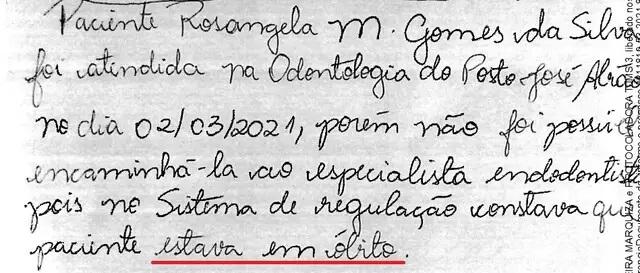 Paciente Rosangela M. Gomes da Silva
foi atendida na Odontologia do Posto José Abrã
no dia 02/03/2021, porém não foi possí
encaminhá-la ao especialista endodontist
pois no Sistema de regulação constava qu
paciente estava em óbito.